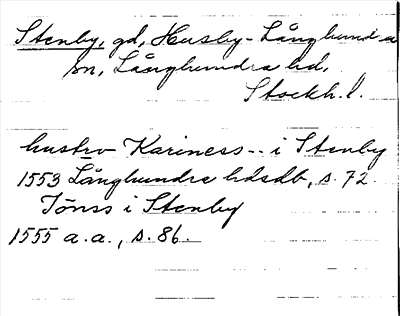 Stenby, gd, Husby-Långhundra
sn, Långhundra hd,
Stockh. l.
hustrv Kariness -- i Stenby
1553 Långhundra hdsdb, s. 72.
Jönss i Stenby
1555 a.a., s. 86.